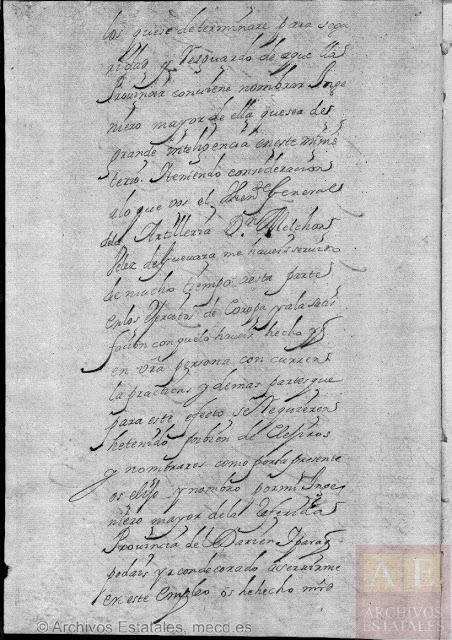 los que se determinare para segu
ridad y Resguardo de aquella
Provincia conviene nombrar Inge
niero mayor de ella que sea de
grande inteligencia en este minis
terio. Y teniendo consideracion
a lo que vos el Then.te General
dela Artilleria D.n Melchor
Pelez de Guevara me haveis servido
de mucho tiempo a esta parte
en los exercitos de Europa y a la satis
facion con que lo haveis hecho y q.
en vra persona con curren
la practica y demas partes que
para este efecto se Requieren
he tenido por bien de elexiros
y nombraros como por la presente
os elijo y nombro por mi Inge
niero mayor de la referida
Provincia de Darien y para q.
podais yr condecorado a servirme
en este empleo os he hecho mrd
© Archivos Estatales, mecd.es
AE
ARCHIVOS
ESTATALES